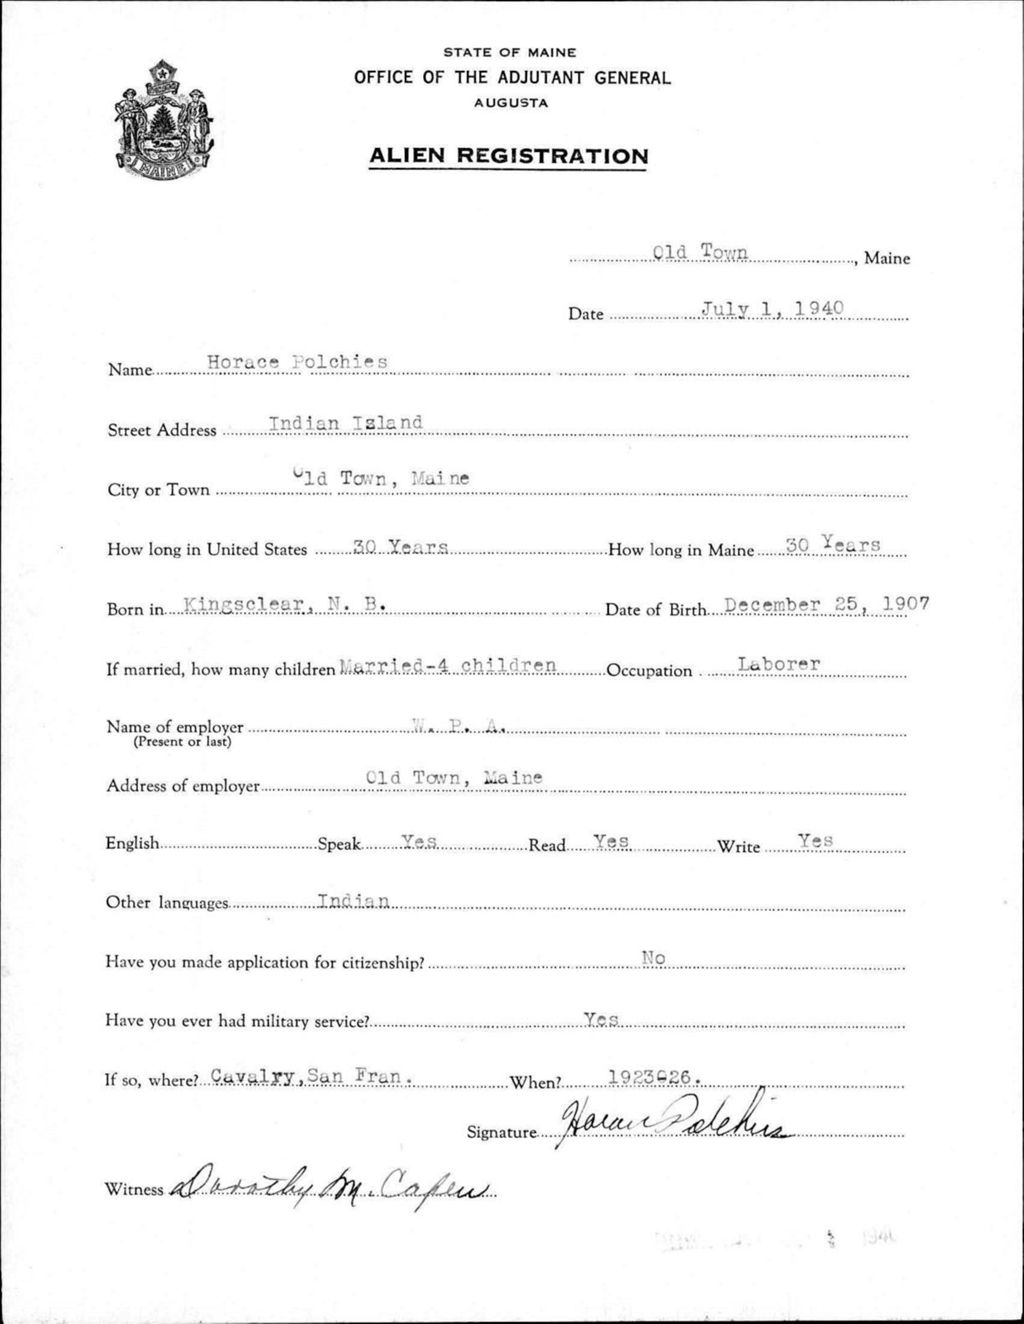 STATE OF MAINE
OFFICE OF THE ADJUTANT GENERAL
AUGUSTA
ALIEN REGISTRATION
MAINE
Old Town, Maine
Date July 1, 1940
Name Horace Polchies
Street Address Indian Island
City or Town Old Town, Maine
How long in United States 30 Years How long in Maine 30 Years
Born in Kingsclear, N. B. Date of Birth December 25, 1907
If married, how many children Married-4 children Occupation Laborer
Name of employer W. P. A.
(Present or last)
Address of employer Old Town, Maine
English Speak Yes Read Yes Write Yes
Other languages Indian
Have you made application for citizenship? No
Have you ever had military service? Yes
If so, where? Cavalry, San Fran. When? 1923-26.
Signature Horace Polchies
Witness Dorothy M. Capen
1940